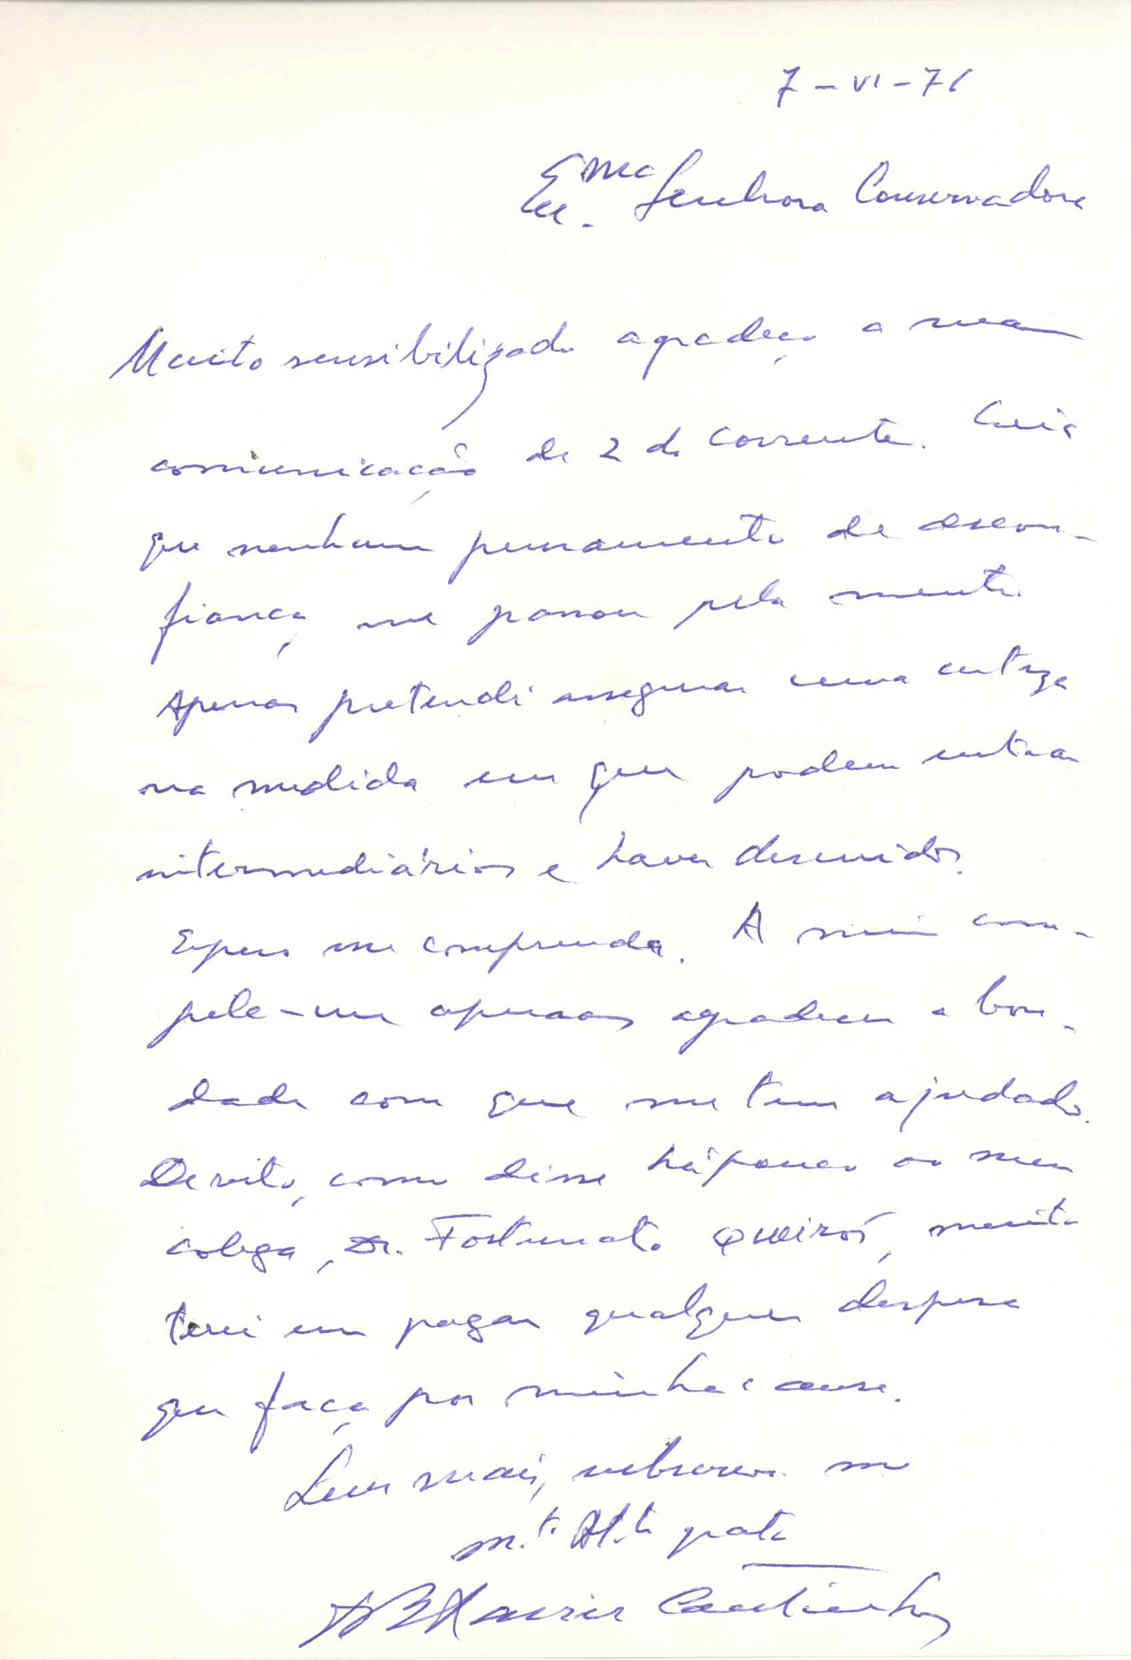 7-VI-76
Exma. Senhora Conservadora
Muito sensibilizado agradeço a sua
comunicação de 2 do corrente. Creia
que nenhum pensamento de descon-
fiança me passou pela mente.
Apenas pretendi assegurar uma certeza
na medida em que podem entrar
intermediários e haver descuidos.
Espero me compreenda. A mim com-
pele-me apenas agradecer a bon-
dade com que me tem ajudado.
Devito, como disse há pouco ao meu
colega, Dr. Fortunato Queirós, muito
terei em pagar qualquer despesa
que faça por minha causa.
Sem mais, subscrevo-me
m.to At.te grato
Xavier Coutinho